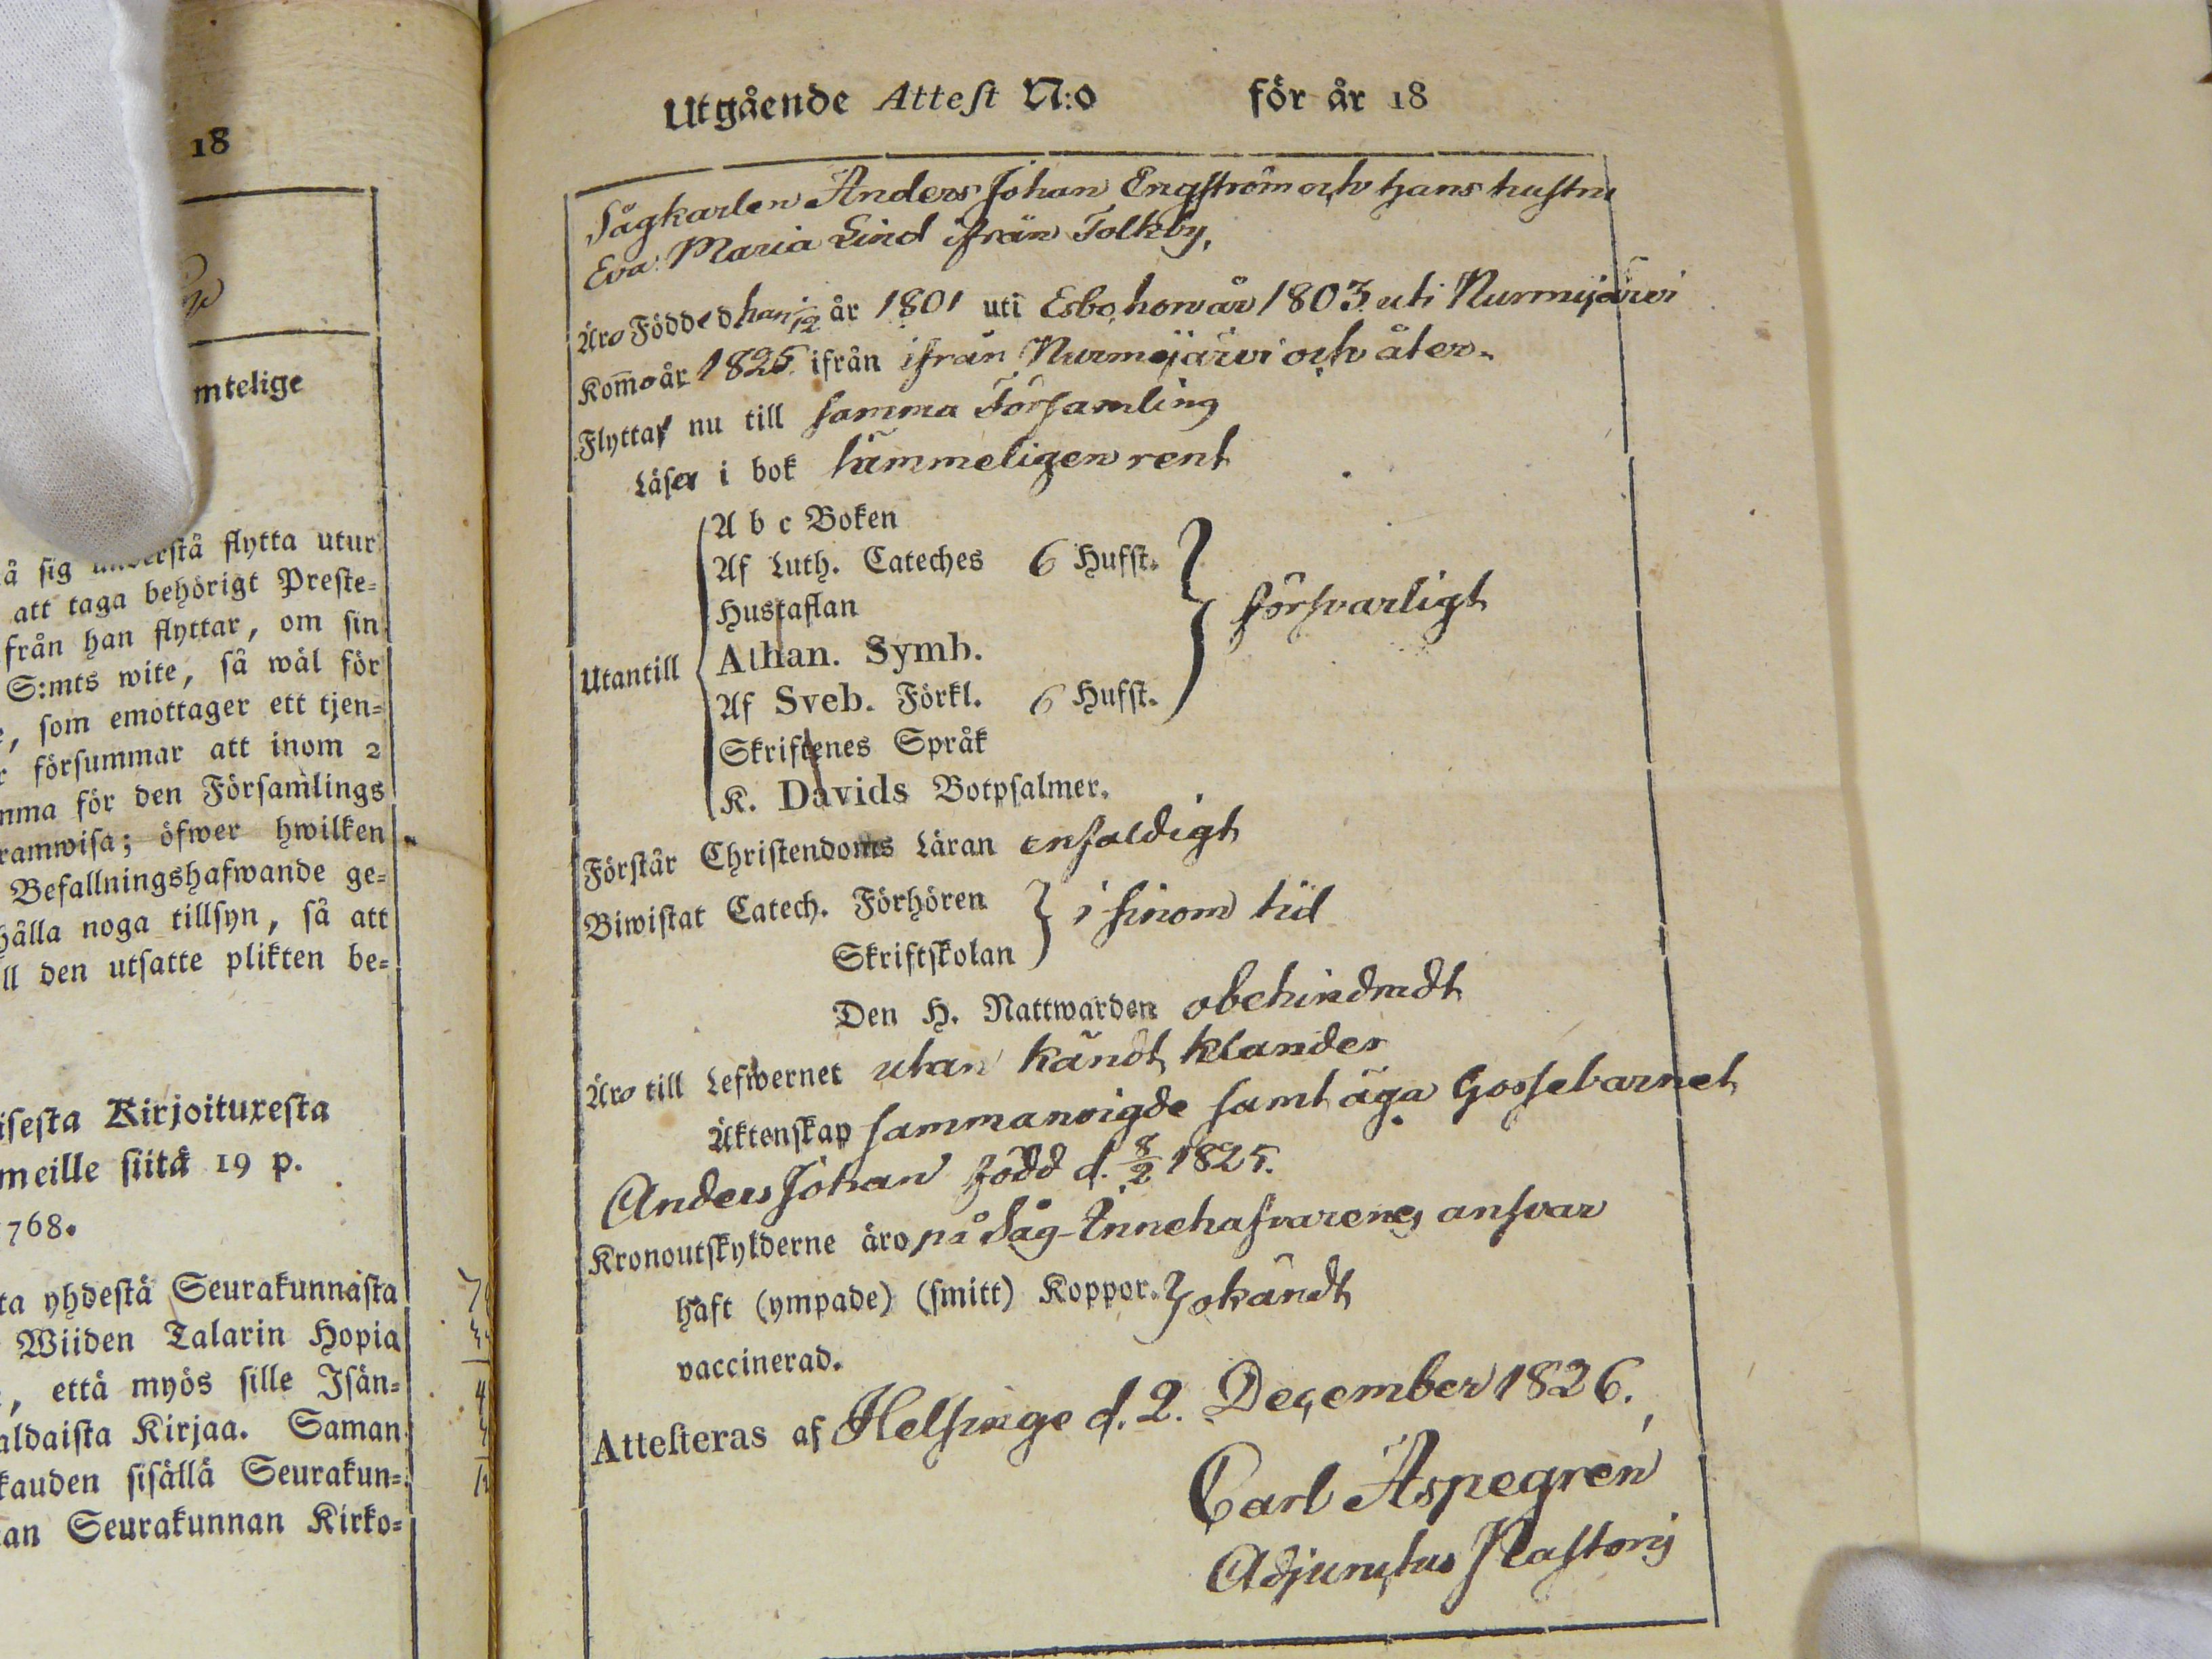 18
mtelige
å sig understå flytta utur
att taga behörigt Preste-
från han flyttar, om sin
S:mts wite, så wäl för
, som emottager ett tjen-
försummar att inom 2
mma för den Församlings
ramwisa; öfwer hwilken
Befallningshafwande ge-
hålla noga tillsyn, så att
ll den utsatte plikten be-
isesta Kirjoituxesta
meille siitä 19 p.
768.
ta yhdestä Seurakunnasta
Wiiden Talarin Hopia
, että myös sille Isän-
aldaista Kirjaa. Saman
kauden sisällä Seurakun-
an Seurakunnan Kirko-
Utgående Attest N:o för år 18
Sågkarlen Anders Johan Engström och hans hustru
Eva Maria Lind ifrån Tolkby,
Äro Födde d han 1/12 år 1801 uti Esbo, hon år 1803 uti Nurmijärvi
Kommo år 1825 ifrån ifrån Nurmijärvi och åter-
Flyttas nu till samma Församling
Läser i bok tämmeligen rent
Utantill
A b c Boken
Af Luth. Cateches 6 Hufst.
Hustaflan
Athan. Symb.
Af Sveb. Förkl. 6 Hufst.
försvarligt
Skriftenes Språk
K. Davids Botpsalmer.
Förstår Christendoms Läran enfaldigt
Biwistat Catech. Förhören
Skriftskolan
i sinom tid
Den H. Nattwarden obehindradt
Äro till Lefwernet utan kändt klander
Äktenskap sammanvigde samt äga Gossebarnet
Anders Johan född d. 8/2 1825.
Kronoutskylderne äro på Såg-Innehafvarenes ansvar
haft (ympade) (smitt) Koppor. } okändt
vaccinerad.
Attesteras af Helsinge d. 2. December 1826.
Carl Aspegren
Adjunctus Pastoris